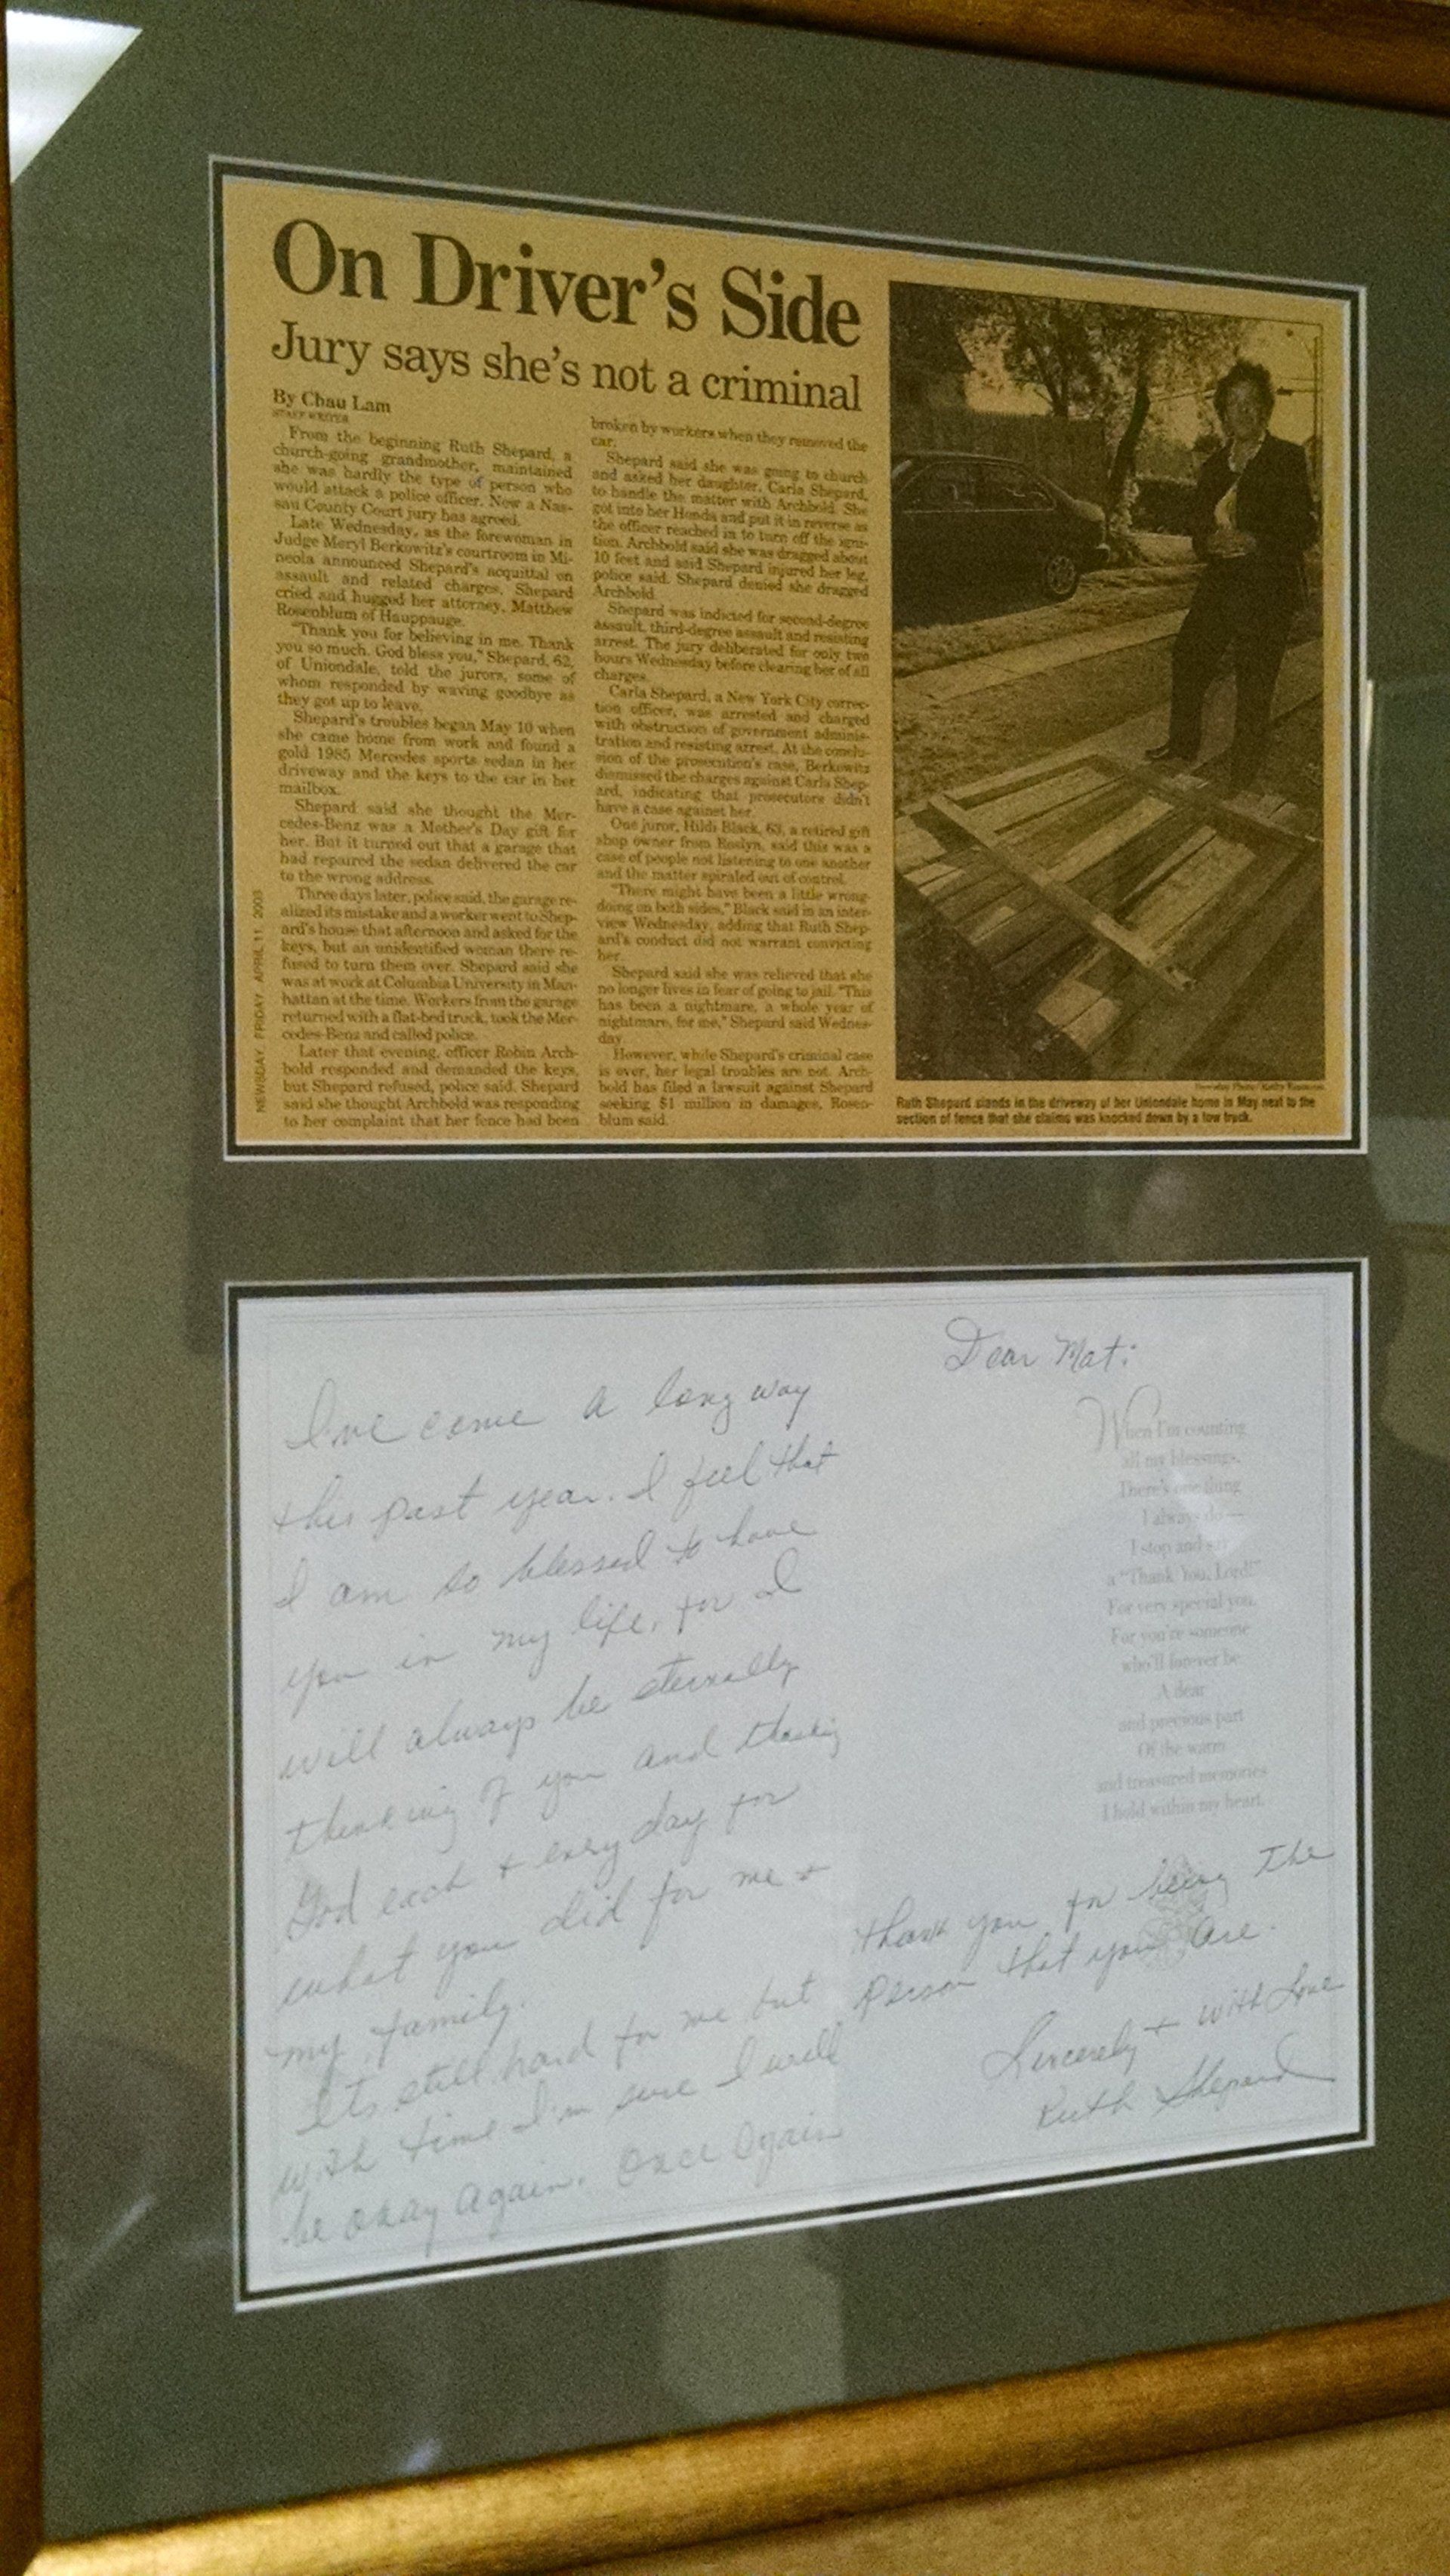 On Driver's Side
Jury says she's not a criminal
By Chau Lam
STAFF WRITER
From the beginning Ruth Shepard, a
church-going grandmother, maintained
she was hardly the type of person who
would attack a police officer. Now a Nas-
sau County Court jury has agreed.
Late Wednesday, as the forewoman in
Judge Meryl Berkowitz's courtroom in Mi-
neola announced Shepard's acquittal on
assault and related charges, Shepard
cried and hugged her attorney, Matthew
Rosenblum of Hauppauge.
"Thank you for believing in me. Thank
you so much. God bless you," Shepard, 62,
of Uniondale, told the jurors, some of
whom responded by waving goodbye as
they got up to leave.
Shepard's troubles began May 10 when
she came home from work and found a
gold 1985 Mercedes sports sedan in her
driveway and the keys to the car in her
mailbox.
Shepard said she thought the Mer-
cedes-Benz was a Mother's Day gift for
her. But it turned out that a garage that
had repaired the sedan delivered the car
to the wrong address.
Three days later, police said, the garage re-
alized its mistake and a worker went to Shep-
ard's house that afternoon and asked for the
keys, but an unidentified woman there re-
fused to turn them over. Shepard said she
was at work at Columbia University in Man-
hattan at the time. Workers from the garage
returned with a flat-bed truck, took the Mer-
cedes-Benz and called police.
Later that evening, officer Robin Arch-
bold responded and demanded the keys,
but Shepard refused, police said. Shepard
said she thought Archbold was responding
to her complaint that her fence had been
broken by workers when they removed the
car.
Shepard said she was going to church
and asked her daughter, Carla Shepard,
to handle the matter with Archbold. She
got into her Honda and put it in reverse as
the officer reached in to turn off the igni-
tion. Archbold said she was dragged about
10 feet and said Shepard injured her leg,
police said. Shepard denied she dragged
Archbold.
Shepard was indicted for second-degree
assault, third-degree assault and resisting
arrest. The jury deliberated for only two
hours Wednesday before clearing her of all
charges.
Carla Shepard, a New York City correc-
tion officer, was arrested and charged
with obstruction of government adminis-
tration and resisting arrest. At the conclu-
sion of the prosecution's case, Berkowitz
dismissed the charges against Carla Shep-
ard, indicating that prosecutors didn't
have a case against her.
One juror, Hildi Black, 63, a retired gift
shop owner from Roslyn, said this was a
case of people not listening to one another
and the matter spiraled out of control.
"There might have been a little wrong-
doing on both sides," Black said in an inter-
view Wednesday, adding that Ruth Shep-
ard's conduct did not warrant convicting
her.
Shepard said she was relieved that she
no longer lives in fear of going to jail. "This
has been a nightmare, a whole year of
nightmare, for me," Shepard said Wednes-
day.
However, while Shepard's criminal case
is over, her legal troubles are not. Arch-
bold has filed a lawsuit against Shepard
seeking $1 million in damages, Rosen-
blum said.
NEWSDAY, FRIDAY, APRIL 11, 2003
Newsday Photo/Kathy
Ruth Shepard stands in the driveway of her Uniondale home in May next to the
section of fence that she claims was knocked down by a tow truck.
I've come a long way
this past year. I feel that
I am so blessed to have
you in my life, for I
will always be eternally
thinking of you and thanking
God each + every day for
what you did for me +
my family.
It's still hard for me but
with time I'm sure I will
be okay again. Once Again
Dear Mat:
When I'm counting
all my blessings,
There's one thing
I always do —
I stop and say
a "Thank You, Lord!"
For very special you,
For you're someone
who'll forever be
A dear
and precious part
Of the warm
and treasured memories
I hold within my heart.
thank you for being the
person that you are.
Sincerely + with Love
Ruth Shepard